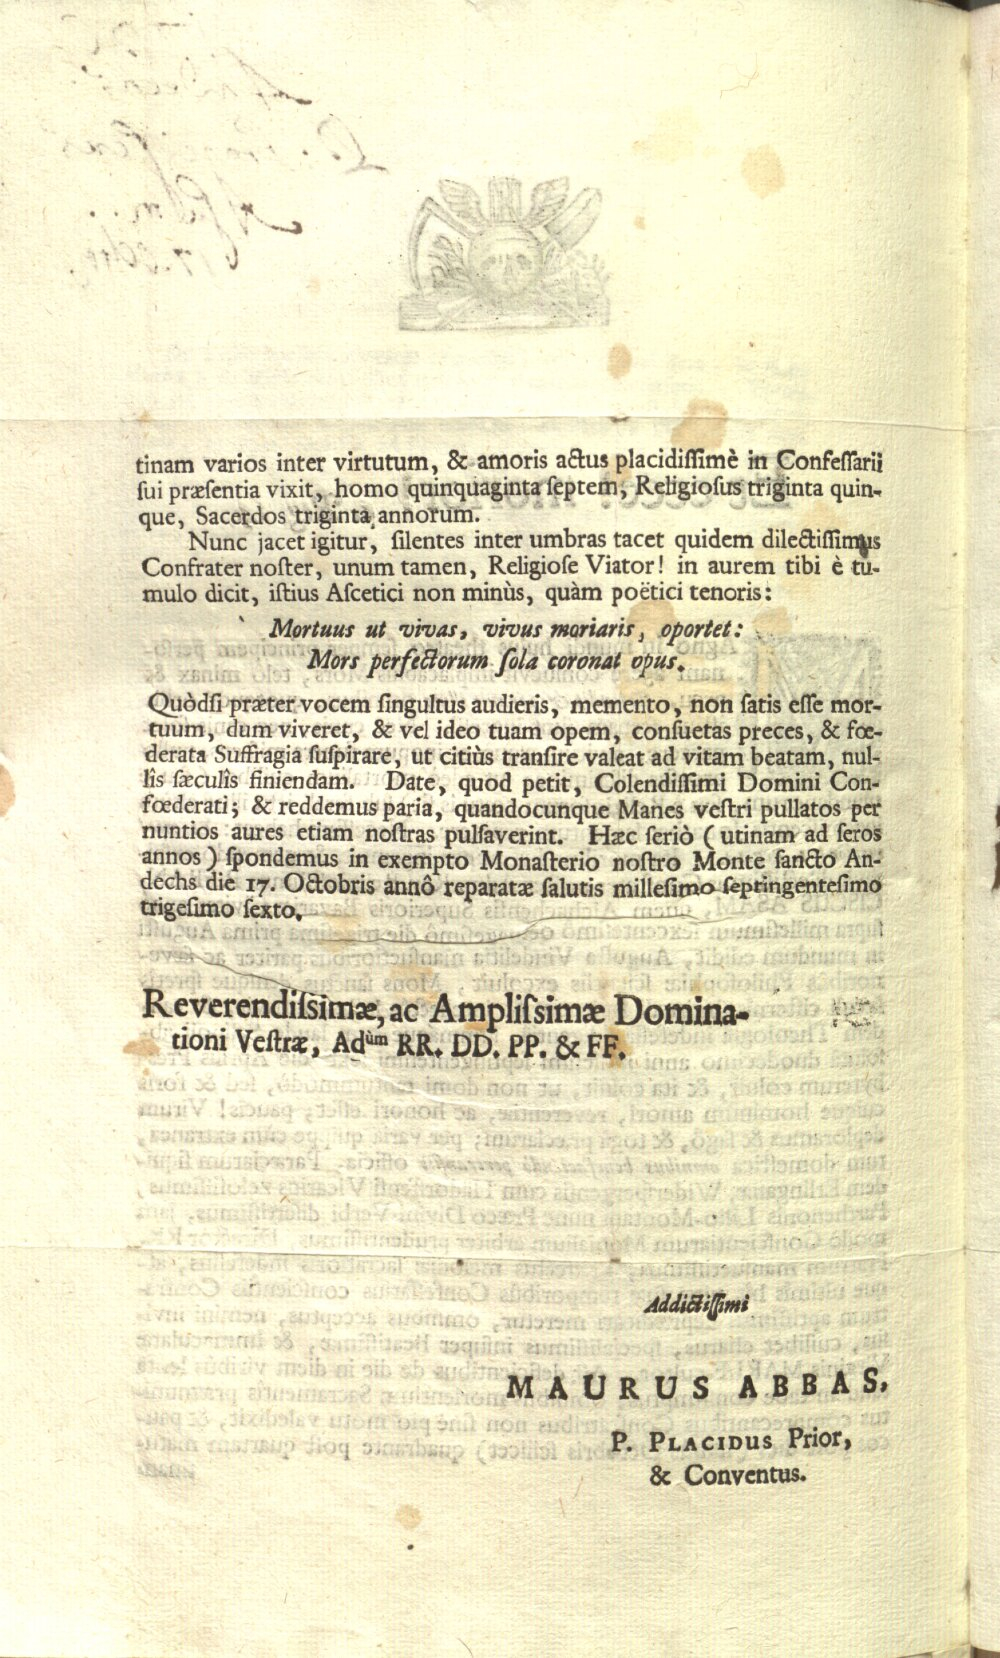 tinam varios inter virtutum, & amoris actus placidissimè in Confessarii
sui præsentia vixit, homo quinquaginta septem, Religiosus triginta quin-
que, Sacerdos triginta annorum.
Nunc jacet igitur, silentes inter umbras tacet quidem dilectissimus
Confrater noster, unum tamen, Religiose Viator! in aurem tibi è tu-
mulo dicit, istius Ascetici non minùs, quàm poëtici tenoris:
Mortuus ut vivas, vivus moriaris, oportet:
Mors perfectorum sola coronat opus.
Quòdsi præter vocem singultus audieris, memento, non satis esse mor-
tuum, dum viveret, & vel ideo tuam opem, consuetas preces, & fœ-
derata Suffragia suspirare, ut citiùs transire valeat ad vitam beatam, nul-
lis sæculis finiendam. Date, quod petit, Colendissimi Domini Con-
fœderati; & reddemus paria, quandocunque Manes vestri pullatos per
nuntios aures etiam nostras pulsaverint. Hæc seriò (utinam ad seros
annos) spondemus in exempto Monasterio nostro Monte sancto An-
dechs die 17. Octobris annô reparatæ salutis millesimo septingentesimo
trigesimo sexto.
Reverendissimæ, ac Amplissimæ Domina-
tioni Vestræ, Adùm RR. DD. PP. & FF.
Addictissimi
MAURUS ABBAS,
P. PLACIDUS Prior,
& Conventus.